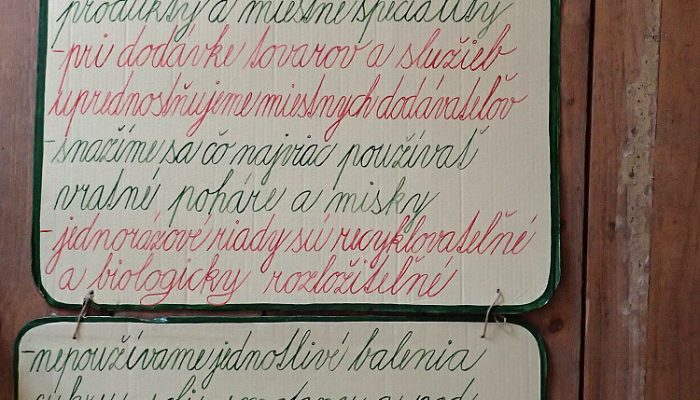 produkty a miestne špeciality
-pri dodávke tovarov a služieb
uprednostňujeme miestnych dodávateľov
-snažíme sa čo najviac používať
vratné poháre a misky
-jednorázové riady sú recyklovateľné
a biologicky rozložiteľné
-nepoužívame jednotlivé balenia